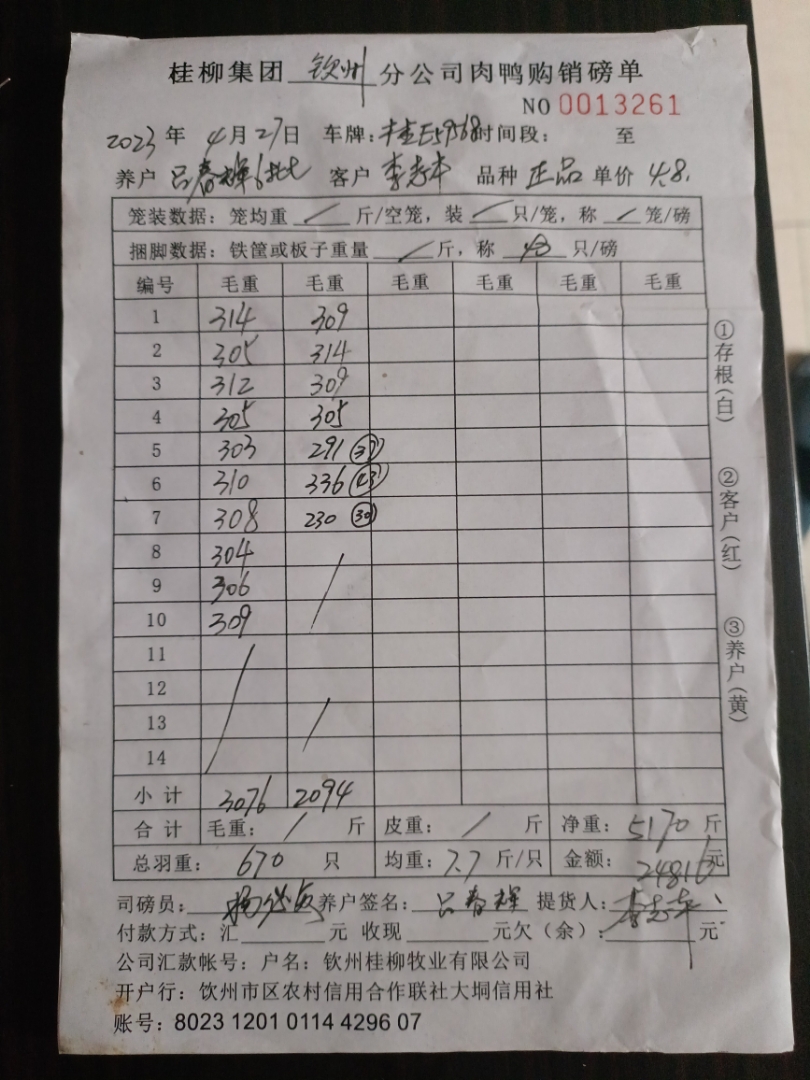 桂柳集团 钦州 分公司肉鸭购销磅单
NO 0013261
2023 年 4月27日 车牌: E59568 时间段: 至
养户 吕春辉 6批 客户 李志 品种 正品 单价 4.8.
笼装数据: 笼均重 / 斤/空笼, 装 / 只/笼, 称 / 笼/磅
捆脚数据: 铁筐或板子重量 / 斤, 称 40 只/磅
编号 毛重 毛重 毛重 毛重 毛重 毛重
1 314 309
2 305 314
3 312 309
4 305 305
5 303 291 (37)
6 310 336 (43)
7 308 230 (30)
8 304
9 306
10 309
11
12
13
14
小 计 3076 2094
合 计 毛重: / 斤 皮重: / 斤 净重: 5170 斤
总羽重: 670 只 均重: 7.7 斤/只 金额: 24816 元
司磅员: 养户签名: 吕春辉 提货人: 李志
付款方式: 汇 元 收现 元欠(余): 元
公司汇款帐号: 户名: 钦州桂柳牧业有限公司
开户行: 钦州市区农村信用合作联社大垌信用社
账号: 8023 1201 0114 4296 07
①存根(白)
②客户(红)
③养户(黄)